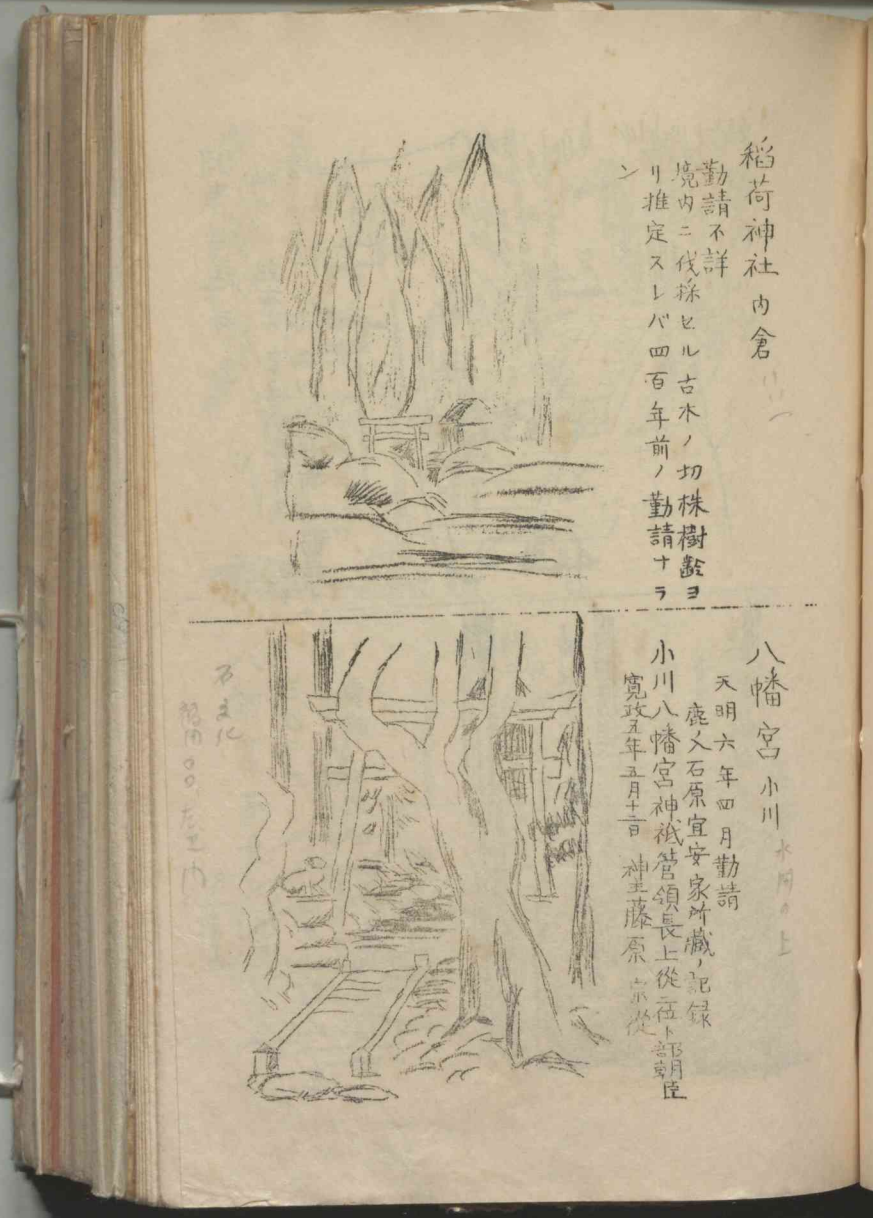 稲荷神社 内倉
勤請不詳
境内ニ伐採セル古木ノ切株樹齢ヨ
リ推定スレバ四百年前ノ勤請ナラ
ン
八幡宮 小川
天明六年四月勤請
鹿人石原宜安家所蔵ノ記録
小川八幡宮神祇管領長上從二位卜部朝臣
寛政五年五月十二日 神主藤原